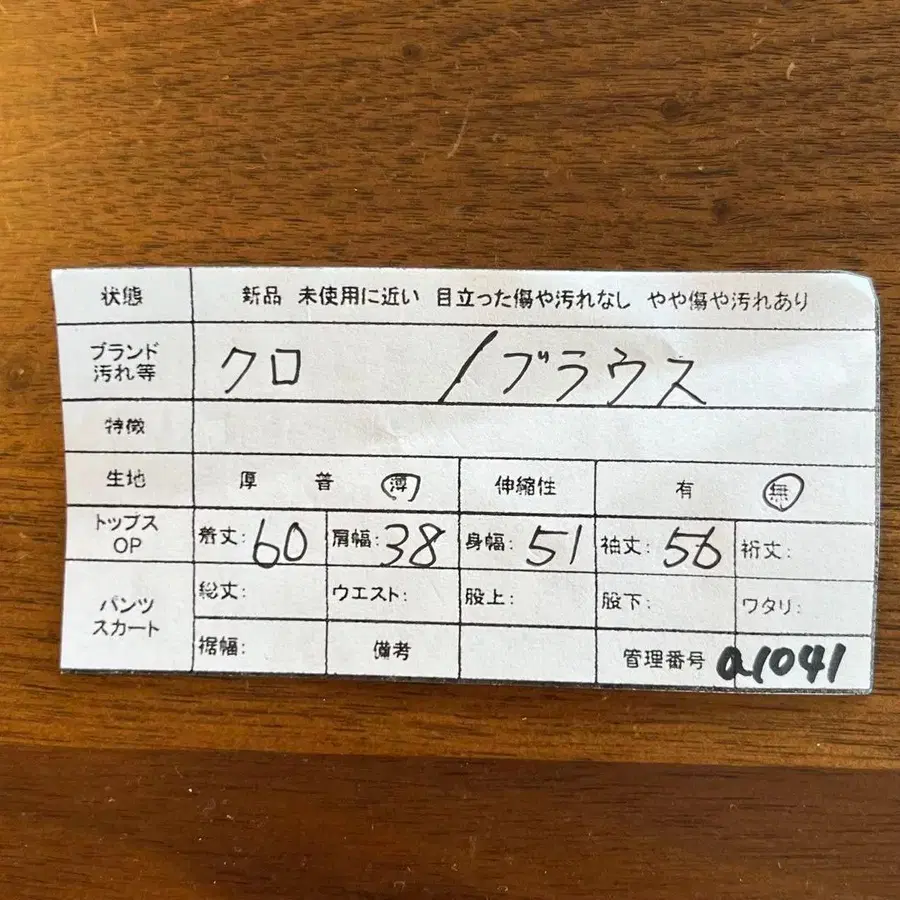 状態 新品 未使用に近い 目立った傷や汚れなし やや傷や汚れあり
ブランド
汚れ等 クロ /ブラウス
特徴
生地 厚 普 薄 伸縮性 有 無
トップス
OP 着丈:60 肩幅:38 身幅:51 袖丈:56 裄丈:
パンツ
スカート 総丈: ウエスト: 股上: 股下: ワタリ:
裾幅: 備考 管理番号 a1041